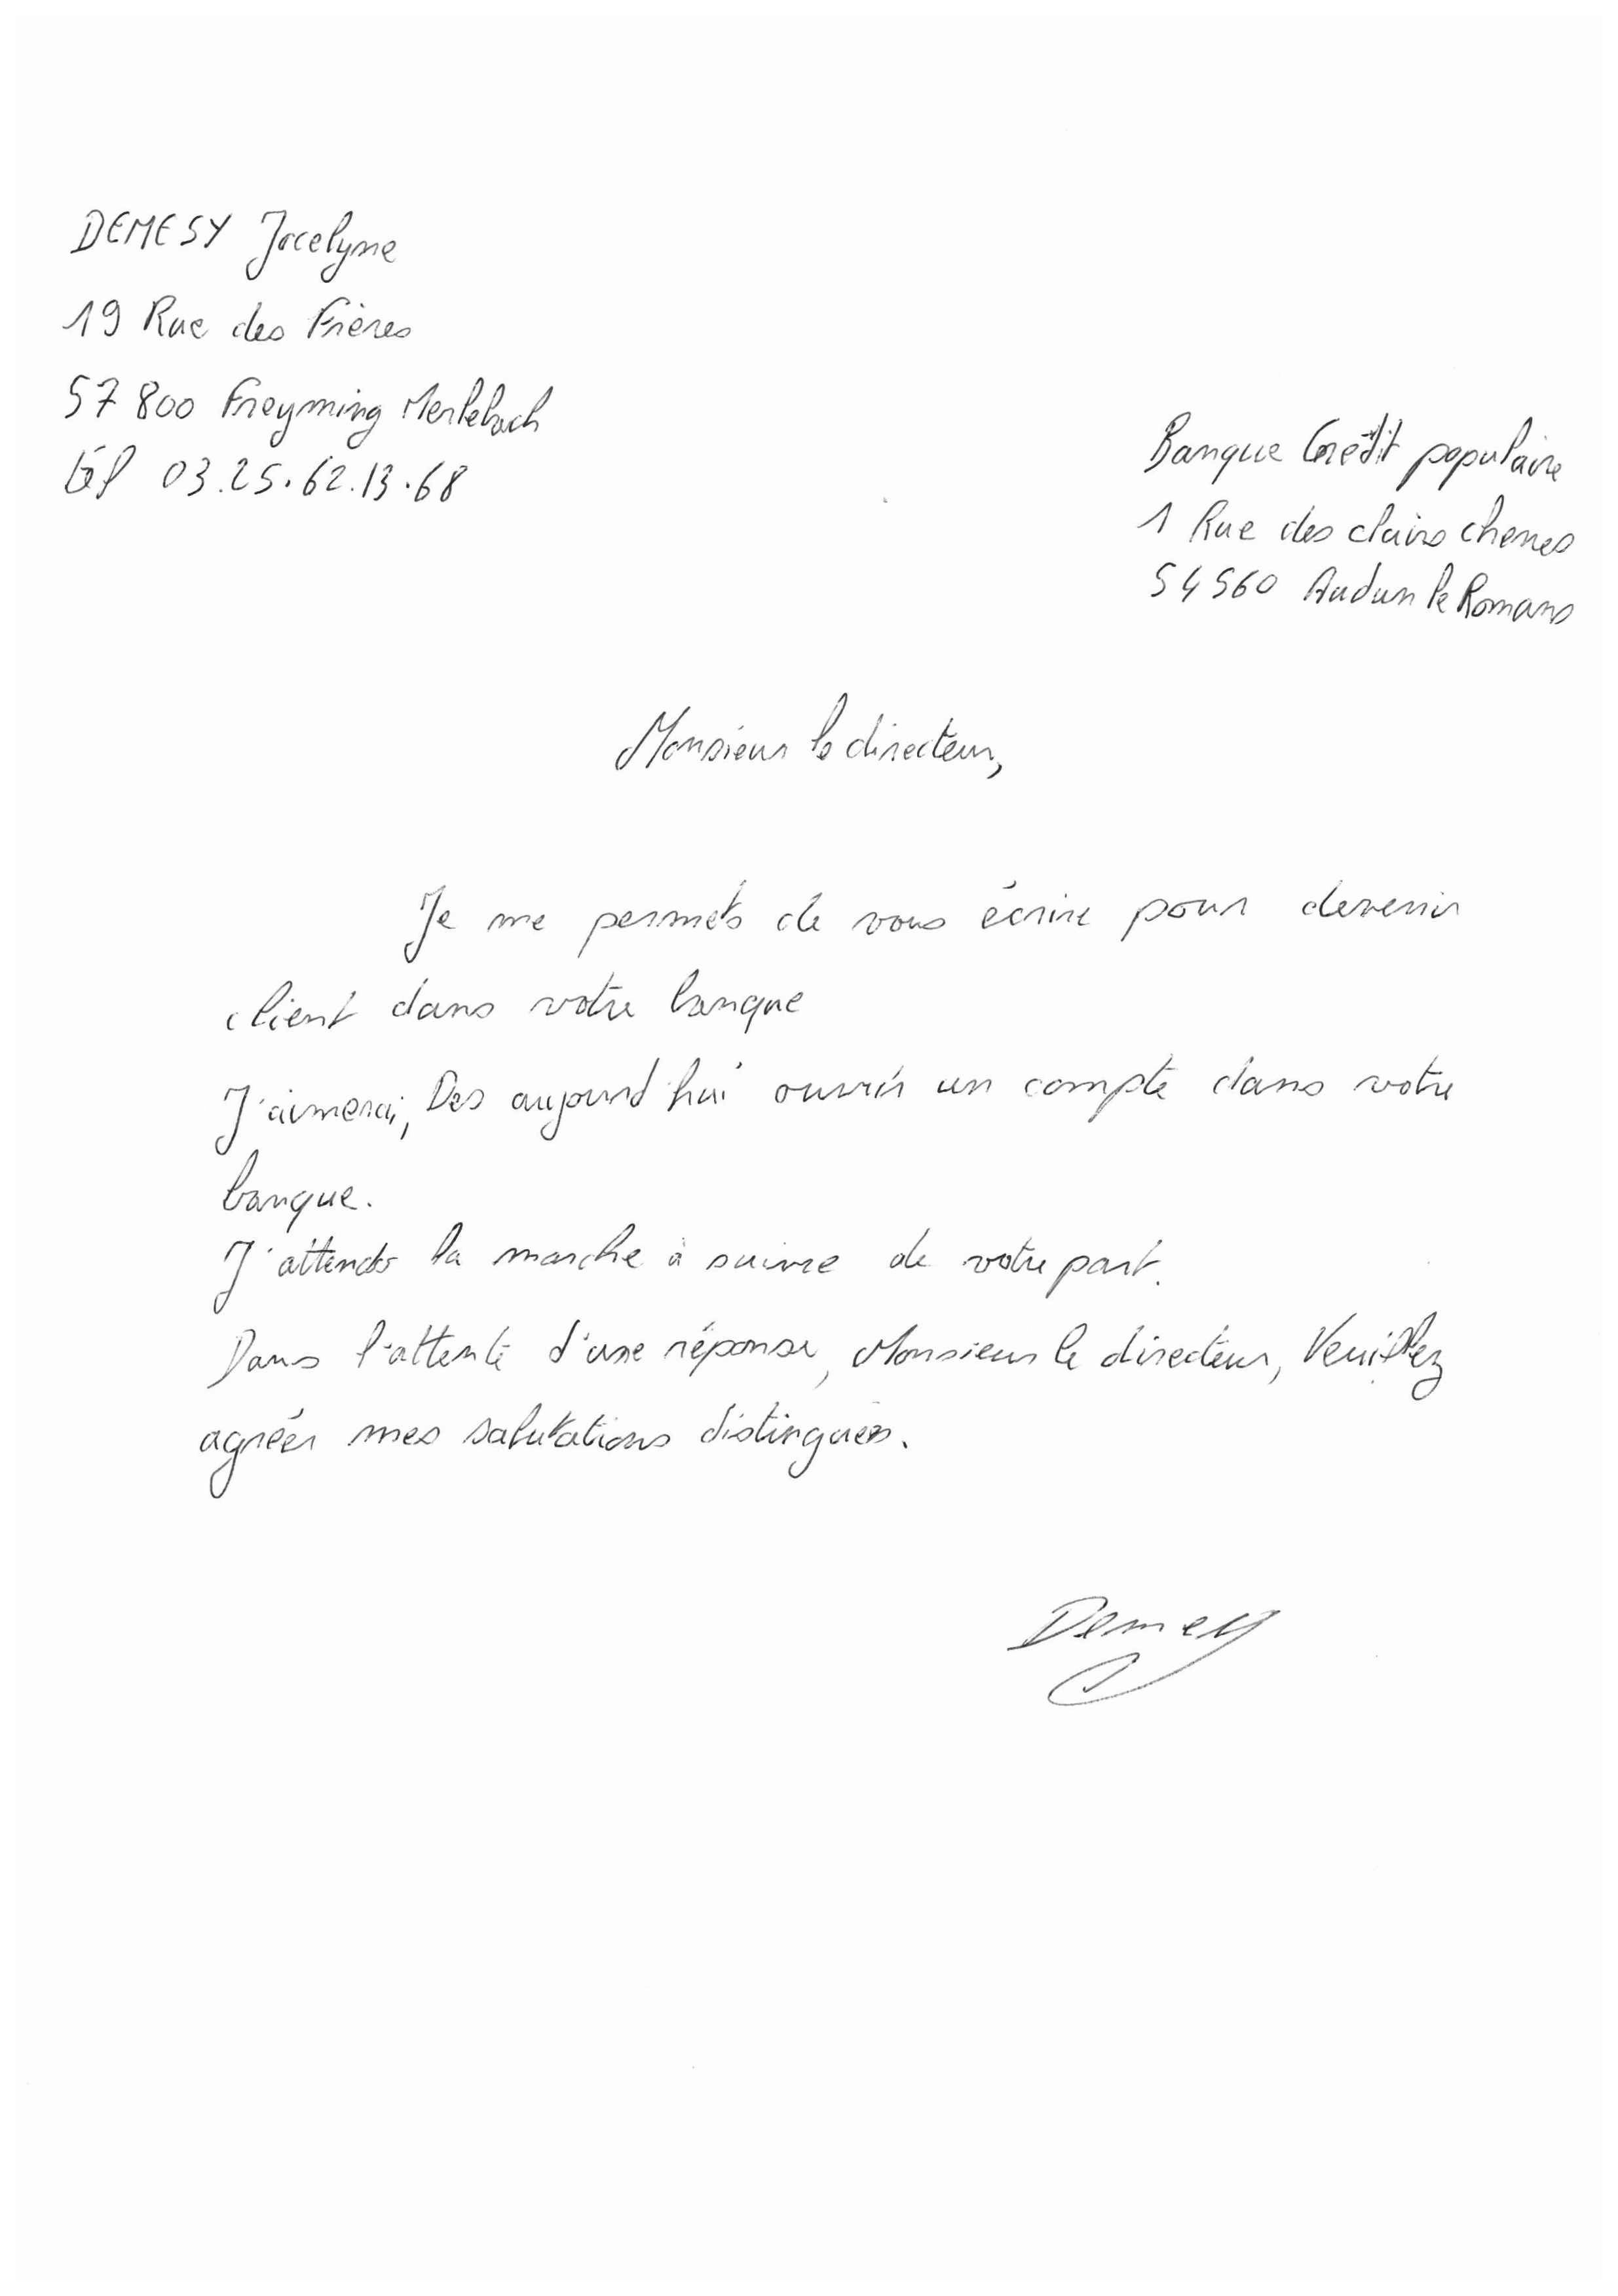 DEMESY Jocelyne
19 Rue des Frères
57 800 Freyming Merlebach
tél 03.25.62.13.68
Banque Crédit populaire
1 Rue des clairs chenes
54560 Audun le Romans
Monsieur le directeur,
Je me permets de vous écrire pour devenir
client dans votre banque
J'aimerai, Des aujourd'hui ouvrir un compte dans votre
banque.
J'attends la marche à suivre de votre part.
Dans l'attente d'une réponse, Monsieur le directeur, Veuillez
agréer mes salutations distinguées.